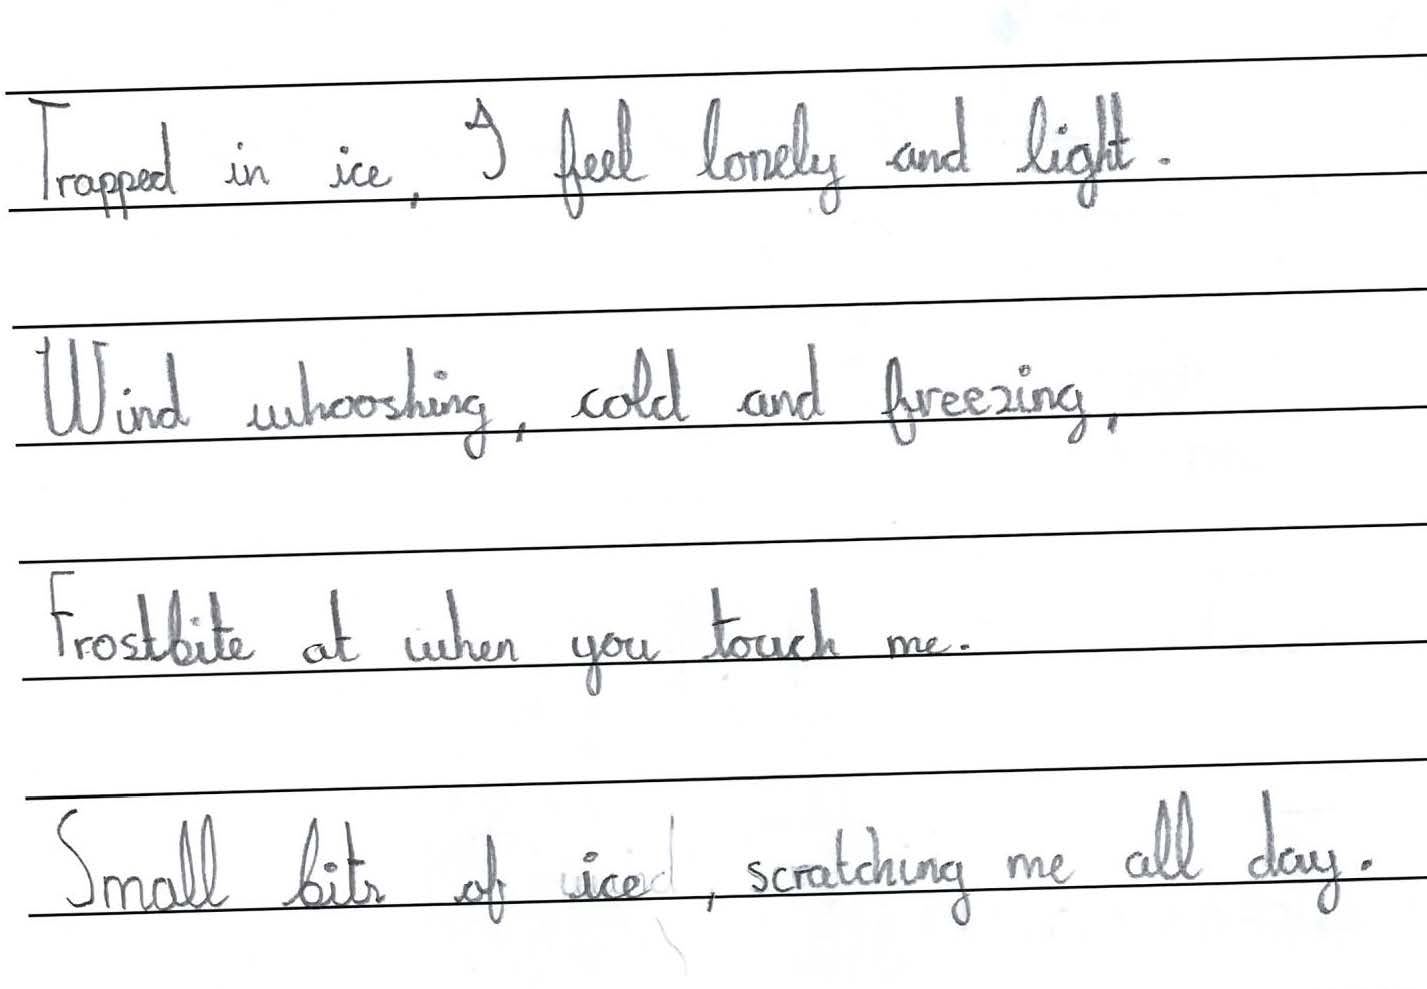 Trapped in ice, I feel lonely and light.
Wind whooshing, cold and freezing,
Frostbite at when you touch me.
Small bits of ice, scratching me all day.